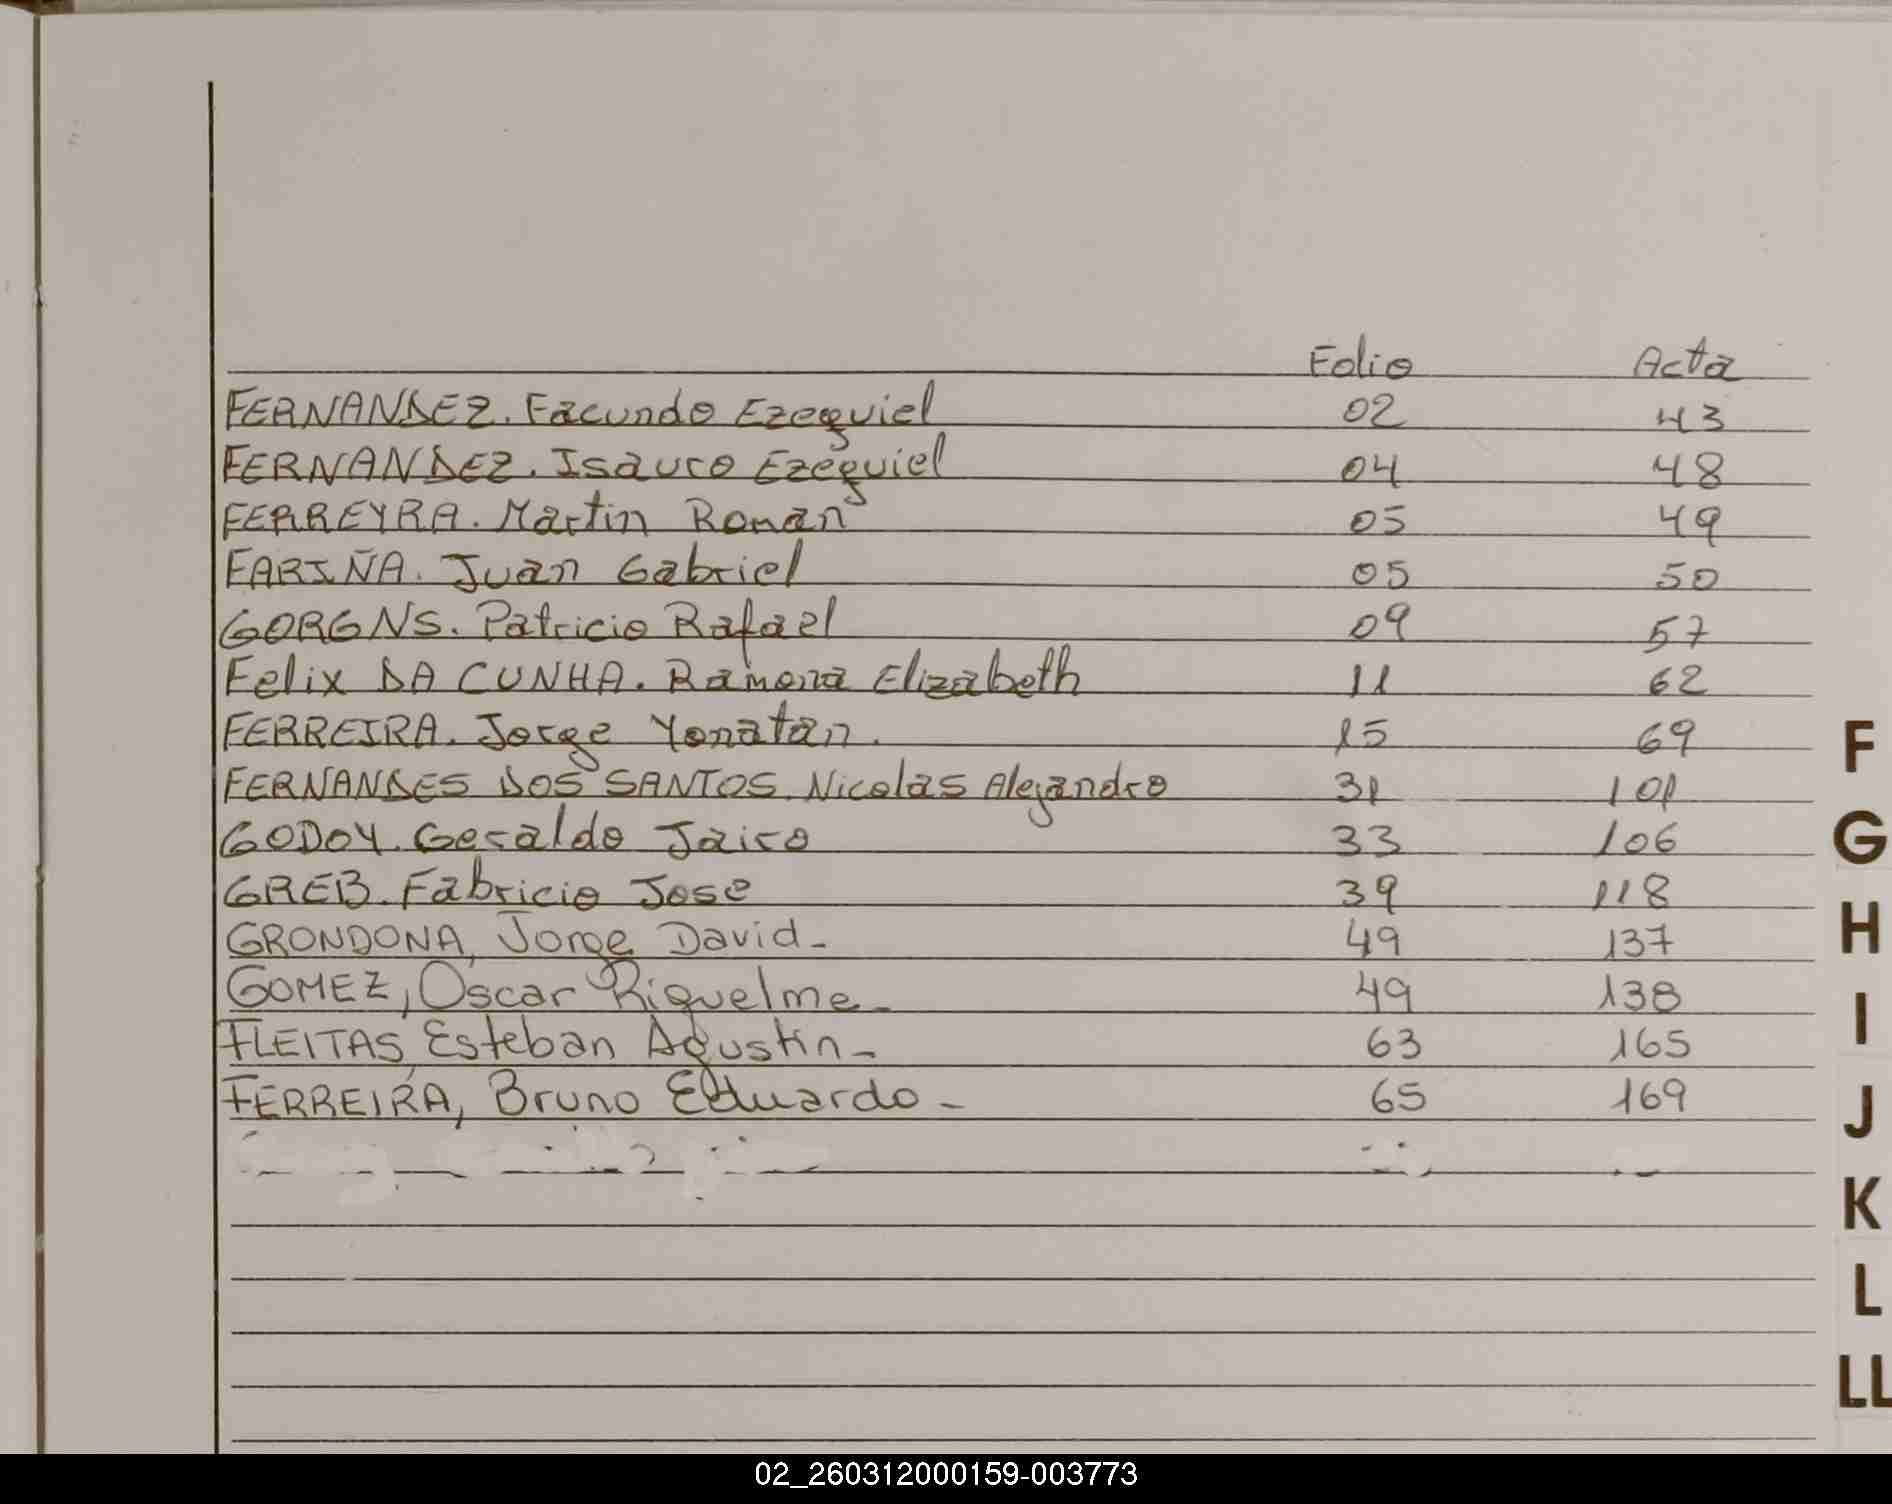 Folio Acta
FERNANDEZ. Facundo Ezequiel 02 43
FERNANDEZ. Isauro Ezequiel 04 48
FERREYRA. Martin Roman 05 49
FARIÑA. Juan Gabriel 05 50
GORGNS. Patricio Rafael 09 57
Felix DA CUNHA. Ramona Elizabeth 11 62
FERREIRA. Jorge Yonatan. 15 69
FERNANDES DOS SANTOS. Nicolas Alejandro 31 101
GODOY. Geraldo Jairo 33 106
GREB. Fabricio Jose 39 118
GRONDONA, Jorge David- 49 137
GOMEZ, Oscar Riquelme- 49 138
FLEITAS, Esteban Agustin- 63 165
FERREIRA, Bruno Eduardo- 65 169
F
G
H
I
J
K
L
LL
02_260312000159-003773